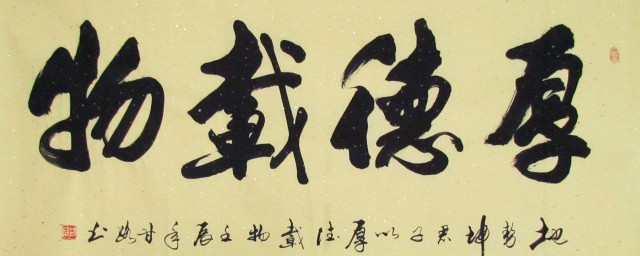 厚德載物
地勢坤君子以厚德載物壬辰年甘书